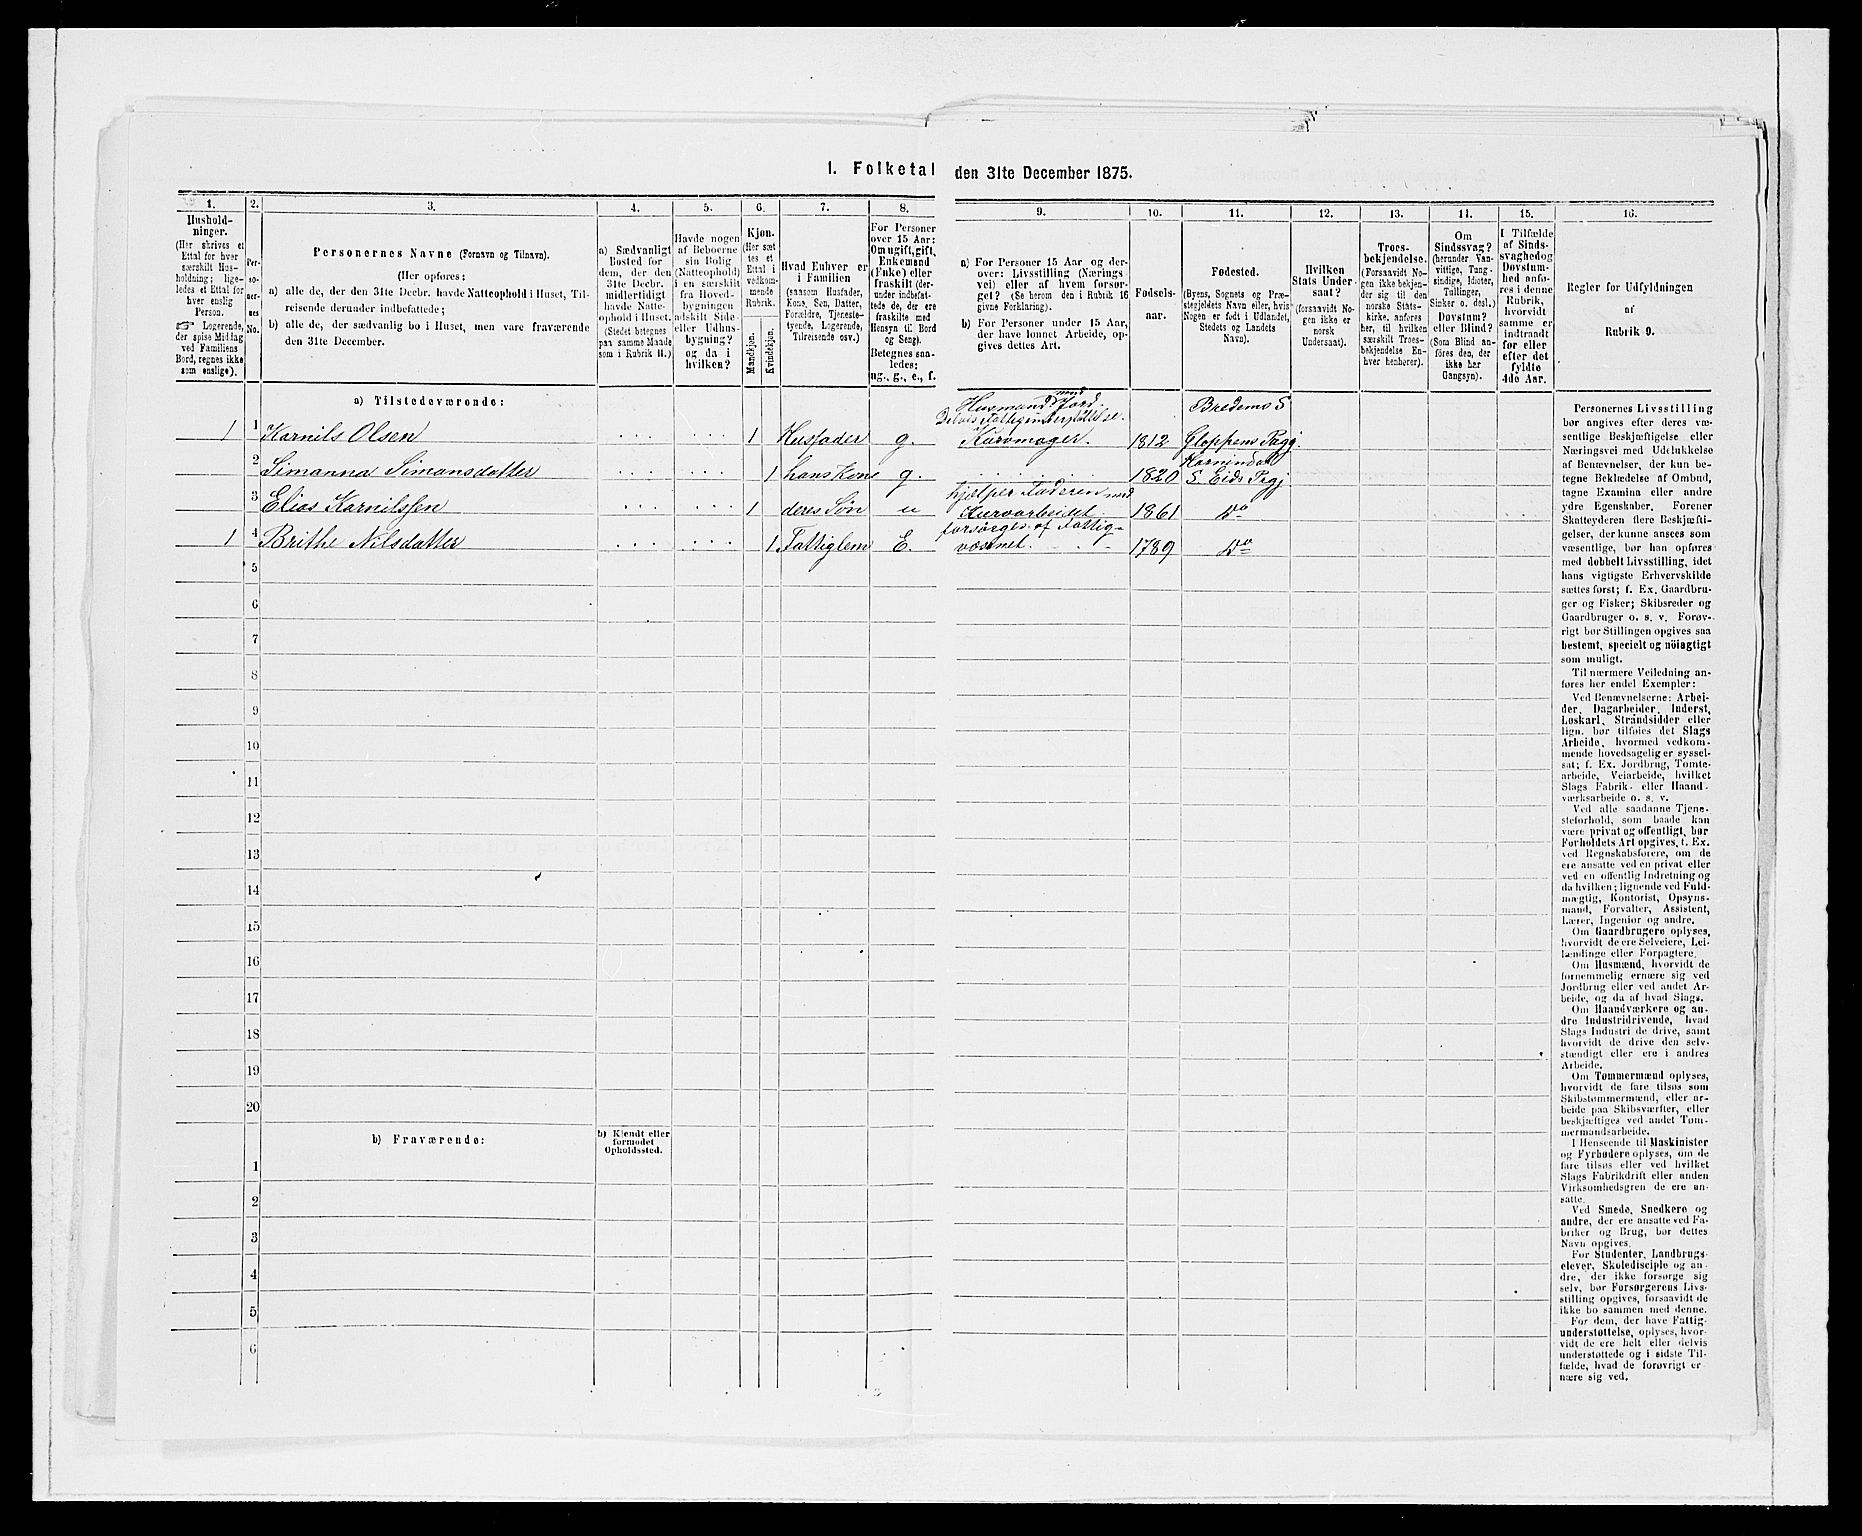 1. Folketal den 31te December 1875.
1. 2. 3. 4. 5. 6. 7. 8. 9. 10. 11. 12. 13. 14. 15. 16.
Hushold-
ninger.
(Her skrives et
Ettal for hver
særskilt Hus-
holdning; lige-
ledes et Ettal for
hver enslig
Person.
☞ Logerende,
der spise Middag
ved Familiens
Bord, regnes ikke
som enslige).
Per-
so-
ner-
nes
No.
Personernes Navne (Fornavn og Tilnavn).
(Her opføres:
a) alle de, der den 31te Decbr. havde Natteophold i Huset, Til-
reisende derunder indbefattede;
b) alle de, der sædvanlig bo i Huset, men vare fraværende
den 31te December.
a) Sædvanligt
Bosted for
dem, der den
31te Decbr.
midlertidigt
havde Natte-
ophold i Huset.
(Stedet betegnes
paa samme Maade
som i Rubrik 11.)
Havde nogen
af Beboerne
sin Bolig
(Natteophold)
i en særskilt
fra Hoved-
bygningen
adskilt Side-
eller Udhus-
bygning?
og da i
hvilken?
Kjøn.
(Her sæt-
tes et
Ettal i
vedkom-
mende
Rubrik.
Mandkjøn.
Kvindekjøn.
Hvad Enhver er
i Familien
(saasom Husfader,
Kone, Søn, Datter,
Forældre, Tjeneste-
tyende, Logerende,
Tilreisende osv.)
For Personer
over 15 Aar:
Om ugift, gift,
Enkemand
(Enke) eller
fraskilt (der-
under indbefat-
tede de, der ere
fraskilte med
Hensyn til Bord
og Seng).
Betegnes saa-
ledes:
ug., g., e., f.
a) For Personer 15 Aar og der-
over: Livsstilling (Nærings-
vei) eller af hvem forsør-
get? (Se herom den i Rubrik 16
givne Forklaring).
b) For Personer under 15 Aar,
der have lønnet Arbeide, op-
gives dettes Art.
Fødsels-
aar.
Fødested.
(Byens, Sognets og Præ-
stegjeldets Navn eller, hvis
Nogen er født i Udlandet,
Stedets og Landets
Navn).
Hvilken
Stats Under-
saat?
(forsaavidt No-
gen ikke er
norsk
Undersaat).
Troes-
bekjendelse.
(Forsaavidt No-
gen ikke bekjen-
der sig til den
norske Stats-
kirke, anføres
her, til hvilken
særskilt Troes-
bekjendelse En-
hver henhører).
Om
Sindssvag?
(herunder Van-
vittige, Tung-
sindige, Idioter,
Tullinger,
Sinker o. desl.)
Døvstum?
eller Blind?
(Som Blind an-
føres den, der
ikke har
Gangsyn).
I Tilfælde
af Sinds-
svaghed og
Døvstum-
hed anfø-
res i denne
Rubrik,
hvorvidt
samme er
indtraadt
før eller
efter det
fyldte
4de Aar.
Regler for Udfyldningen
af
Rubrik 9.
a) Tilstedeværende:
1 1 Karnils Olsen 1 Husfader g. Husmand med Jord. Delvis Fattigunderstøttelse. Kurvmager. 1812 Bredems S Gloppens Pgj.
2 Simanna Simonsdatter 1 hans Kone g. 1820 Hornindal S. Eids Pgj
3 Elias Karnilssen 1 deres Søn u hjelper Faderen med Kurvarbeidet. 1861 Do
1 4 Brithe Nilsdatter 1 Fattiglem E. forsørges af Fattigvæsnet. 1789 Do
5
6
7
8
9
10
11
12
13
14
15
16
17
18
19
20
b) Fraværende:
b) Kjendt eller
formodet
Opholdssted.
1
2
3
4
5
6
Personernes Livsstilling
bør angives efter deres væ-
sentlige Beskjæftigelse eller
Næringsvei med Udelukkelse
af Benævnelser, der kun be-
tegne Beklædelse af Ombud,
tagne Examina eller andre
ydre Egenskaber. Forener
Skatteyderen flere Beskjæfti-
gelser, der kunne ansees som
væsentlige, bør han opføres
med dobbelt Livsstilling, idet
hans vigtigste Erhvervskilde
sættes først; f. Ex. Gaardbru-
ger og Fisker; Skibsreder og
Gaardbruger o. s. v. Forøv-
rigt bør Stillingen opgives saa
bestemt, specielt og nöiagtigt
som muligt.
Til nærmere Veiledning an-
føres her endel Exempler:
Ved Benævnelserne: Arbei-
der, Dagarbeider, Inderst,
Løskarl, Strandsidder eller
lign. bør tilføies det Slags
Arbeide, hvormed vedkom-
mende hovedsagelig er syssel-
sat; f. Ex. Jordbrug, Tomte-
arbeide, Veiarbeide, hvilket
Slags Fabrik- eller Haand-
værksarbeide o. s. v.
Ved alle saadanne Tjene-
steforhold, som baade kan
være privat og offentligt, bør
Forholdets Art opgives, t. Ex.
ved Regnskabsførere, om de
ere ansatte ved en privat eller
ved en offentlig Indretning og
da hvilken; lignende ved Fuld-
mægtig, Kontorist, Opsyns-
mand, Forvalter, Assistent,
Lærer, Ingeniør og andre.
Om Gaardbrugere oplyses,
hvorvidt de ere Selveiere, Lei-
lændinge eller Forpagtere.
Om Husmænd, hvorvidt de
fornemmelig ernære sig ved
Jordbrug eller ved andet Ar-
beide, og da af hvad Slags.
Om Haandværkere og an-
dre Industridrivende, hvad
Slags Industri de drive, samt
hvorvidt de drive den selv-
stændigt eller ere i andres
Arbeide.
Om Tømmermænd oplyses,
hvorvidt de fare tilsøs som
Skibstømmermænd, eller ar-
beide paa Skibsværfter, eller
beskjæftiges ved andet Tøm-
mermandsarbeide.
I Henseende til Maskinister
og Fyrbødere oplyses, om de
fare tilsøs eller ved hvilket
Slags Fabrikdrift eller anden
Virksomhedsgren de ere an-
satte.
Ved Smede, Snedkere og
andre, der ere ansatte ved Fa-
briker og Brug, bør dettes
Navn opgives.
For Studenter, Landbrugs-
elever, Skoledisciple og an-
dre, der ikke forsørge sig
selv, bør Forsørgerens Livs-
stilling opgives, forsaavidt de
ikke bo sammen med denne.
For dem, der have Fattig-
understøttelse, oplyses, hvor-
vidt de ere helt eller delvis
understøttede og i sidste Til-
fælde, hvad de forøvrigt er-
nære sig ved.